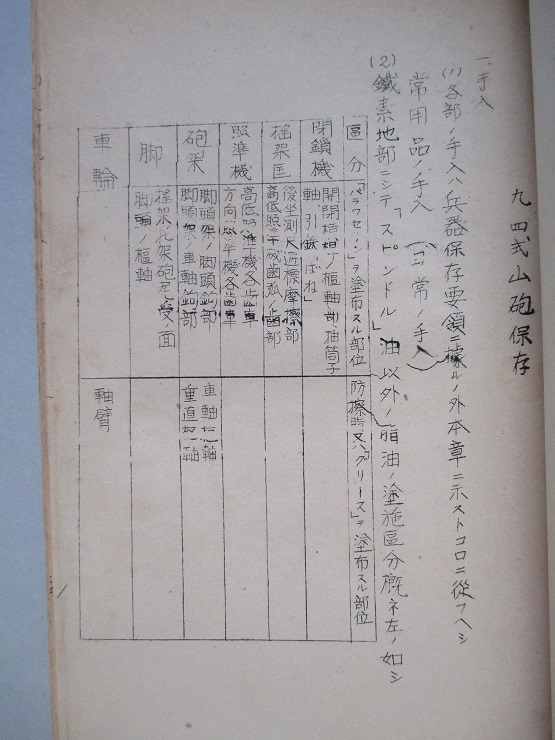 九四式山砲保存
一、手入
(1) 各部ノ手入ハ兵器保存要領ニ據ルノ外本章ニ示ストコロニ從フヘシ
常用品ノ手入 常ノ手入
(2) 鐵素地部ニシテ「スピンドル」油以外ノ脂油ノ塗施區分概ネ左ノ如シ
區分
「パラフセリン」ヲ塗布スル部位
防擦脂又ハ「グリース」ヲ塗布スル部位
閉鎖機
開閉梃 樞軸 油筒子
軸、引鉄、ばね
搖架匡
後坐測尺遊標摩擦部
高低照準機歯弧ノ歯部
照準機
高低照準機各歯車
方向照準機各歯車
砲架
脚頭架ノ脚頭鉤部
脚頭架ノ車軸鉤部
車軸
垂直 軸
脚
搖架 架砲 受ノ面
脚頭ノ樞軸
車輪
軸臂